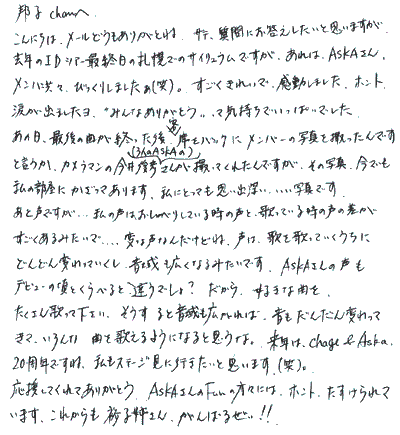 邦子 chanへ
こんにちは、メールどうもありがとね。 サテ、質問にお答えしたいと思いますが、
去年のIDツアー最終日の札幌でのサイリュウムですが、あれは、ASKAさん、
メンバー共々、びっくりしましたぁ(笑)。すごくきれいで、感動しました。ホント、
涙が出ましたヨ。"みんなありがとう"、、って気持ちでいっぱいでした。
あの日、最後の曲が終った後、客席をバックに メンバーの写真を撮ったんです
と言うか、カメラマンの今井俊彦さんが(3人のASKAの)撮ってくれたんですが、その写真、今でも
私の部屋にかざってあります。私にとっても思い出深い、、、、写真です。
あと声ですが、、、私の声はおしゃべりしている時の声と、歌っている時の声の差が
すごくあるみたいで、、、、変な声なんだけどね、声は、歌を歌っていくうちに
どんどん変わっていくし、音域も広くなるみたいです。ASKAさんの声も
デビューの頃とくらべると違うでしょ？ だから、好きな曲を、
たくさん歌って下さい。そうすると音域も広がれば、音もだんだん変わって
きて、いろんな曲を歌えるようになると思うなぁ。 来年は、chage & Aska、
20周年ですね、私もステージ見に行きたいと思います(笑)。
応援してくれてありがとう。ASKAさんのFunの方々には、ホント、たすけられて
います、これからも 裕子姉さん、がんばるぜぃ!!